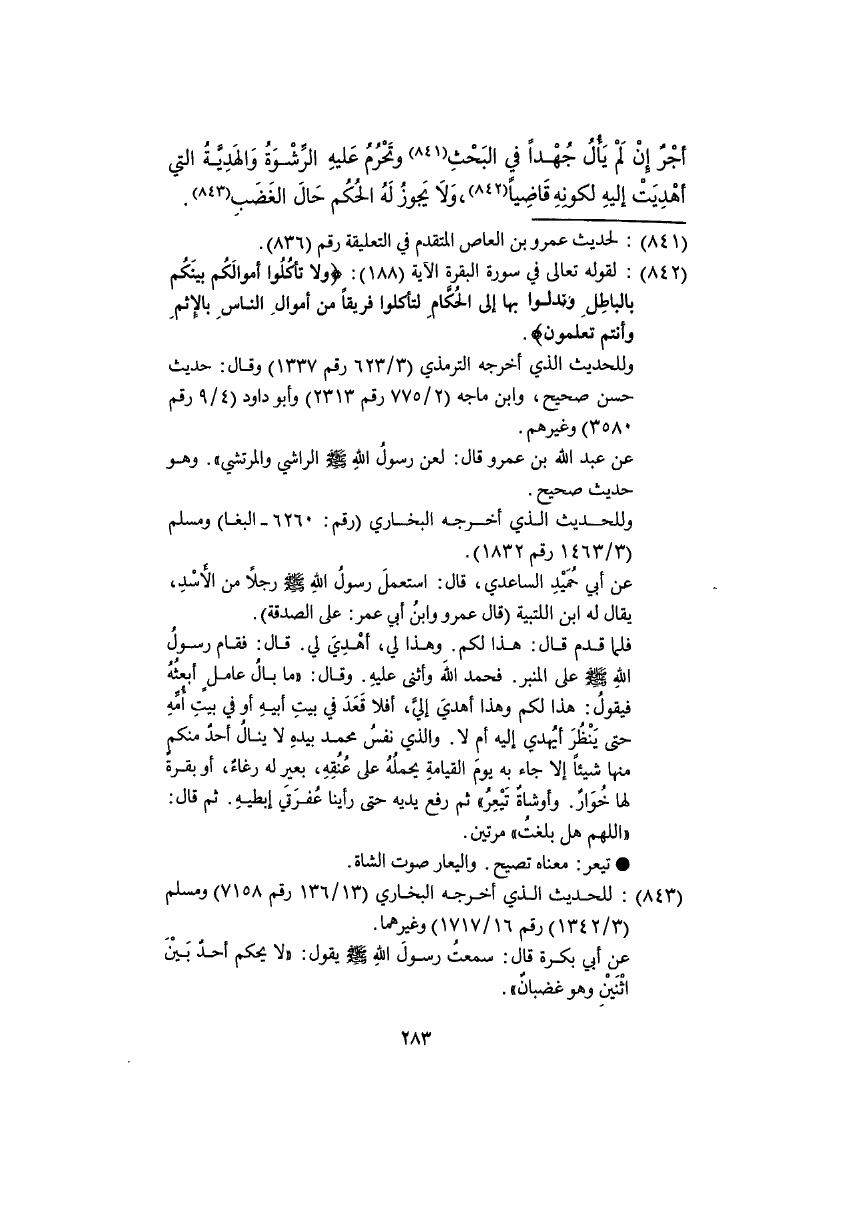 أجْرٌ إنْ لَمْ يَأْلُ جُهْداً في البَحْثِ(٨٤١) وتَحْرُمُ عَليهِ الرِّشْوَةُ وَالهَدِيَّةُ التي
أهْدِيَتْ إليهِ لكونِهِ قَاضِياً(٨٤٢)، وَلَا يَجوزُ لَهُ الحُكُم حَالَ الغَضَبِ(٨٤٣).
(٨٤١) : لحديث عمرو بن العاص المتقدم في التعليقة رقم (٨٣٦).
(٨٤٢) : لقوله تعالى في سورة البقرة الآية (١٨٨): ﴿ولا تأكُلُوا أموالَكُم بينَكُم
بالباطِلِ وَتدلوا بها إلى الحُكَّامِ لتأكلوا فريقاً من أموالِ الناسِ بالإثمِ
وأنتم تعلمون﴾.
وللحديث الذي أخرجه الترمذي (٦٢٣/٣ رقم ١٣٣٧) وقال: حديث
حسن صحيح، وابن ماجه (٧٧٥/٢ رقم ٢٣١٣) وأبو داود (٩/٤ رقم
٣٥٨٠) وغيرهم.
عن عبد الله بن عمرو قال: لعن رسولُ اللهِ ﷺ الراشي والمرتشي». وهو
حديث صحيح.
وللحديث الذي أخرجه البخاري (رقم: ٦٢٦٠ - البغا) ومسلم
(١٤٦٣/٣ رقم ١٨٣٢).
عن أبي حُمَيْدٍ الساعدي، قال: استعملَ رسولُ اللهِ ﷺ رجلاً من الأَسْدِ،
يقال له ابن اللتبية (قال عمرو وابنُ أبي عمر: على الصدقة).
فلما قدم قال: هذا لكم. وهذا لي، أهْدِيَ لي. قال: فقام رسولُ
اللهِ ﷺ على المنبر. فحمد اللهَ وأثنى عليهِ. وقال: «ما بالُ عاملٍ أبعثُهُ
فيقولُ: هذا لكم وهذا أهديَ إليَّ، أفلا قَعَدَ في بيتِ أبيهِ أو في بيتِ أُمِّهِ
حتى يَنْظُرَ أيُهدي إليه أم لا. والذي نفسُ محمد بيدهِ لا ينالُ أحدٌ منكم
منها شيئاً إلا جاء به يومَ القيامةِ يحملُهُ على عُنُقِهِ، بعير له رغاءٌ، أو بقرةٌ
لها خُوَارٌ. وأوشاةٌ تَيْعِرُ» ثم رفع يديه حتى رأينا عُفرَتَي إبطيهِ. ثم قال:
«اللهم هل بلغتُ» مرتين.
● تيعر: معناه تصيح. واليعار صوت الشاة.
(٨٤٣) : للحديث الذي أخرجه البخاري (١٣٦/١٣ رقم ٧١٥٨) ومسلم
(١٣٤٢/٣) رقم ١٧١٧/١٦) وغيرهما.
عن أبي بكرة قال: سمعتُ رسولَ اللهِ ﷺ يقول: «لا يحكم أحدٌ بَيْنَ
اثْنَيْنِ وهو غضبانٌ».
٢٨٣